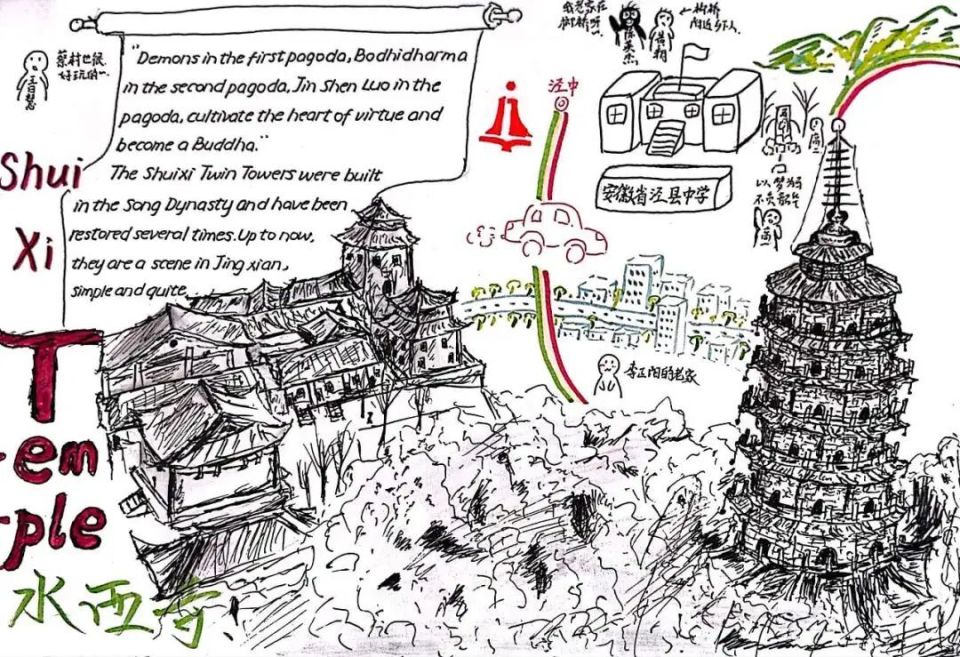 Shui
Xi
Tem
ple
水西寺!
"Demons in the first pagoda, Bodhidharma
in the second pagoda, Jin Shen Luo in the
pagoda, cultivate the heart of virtue and
become a Buddha."
The Shuixi Twin Towers were built
in the Song Dynasty and have been
restored several times. Up to now,
they are a scene in Jing xian,
simple and quite
蔡村也很
好玩的
泾中
安徽省泾县中学
我老家在
以梦为
李正阳的老家